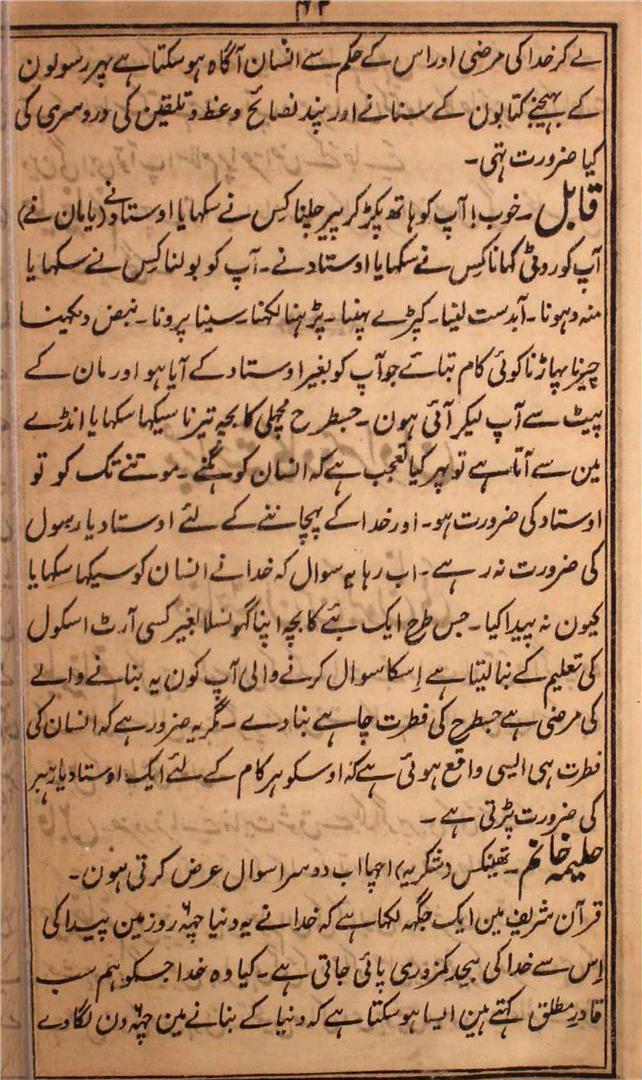 ۴۲
لے کر خدا کی مرضی اور اس کے حکم سے انسان آگاہ ہو سکتا ہے پہر رسولون
کے بہیجنے کتابون کے سنانے اور پند نصائح وعظ و تلقین کی دردسری کی
کیا ضرورت تہی۔
قابل۔ خوب! آپ کو ہاتھ پکڑ کر پیر چلنا کس نے سکہایا اوستاد نے (یا مان نے)
آپ کو روٹی کہانا کس نے سکہایا اوستاد نے۔ آپ کو بولنا کس نے سکہایا
منہ دہونا۔ آبدست لینا۔ کپڑے پہننا۔ پڑہنا لکہنا۔ سینا پرونا۔ نبض دیکہنا
چیرنا پہاڑنا کوئی کام بتائے جو آپ کو بغیر اوستاد کے آیا ہو اور مان کے
پیٹ سے آپ لیکر آئی ہون۔ جسطرح مچہلی کا بچہ تیرنا سیکہا سکہایا انڈے
مین سے آتا ہے تو پہر کیا تعجب ہے کہ انسان کو ہگنے۔ موتنے تک کو تو
اوستاد کی ضرورت ہو۔ اور خدا کے پہچاننے کے لئے اوستاد یا رسول
کی ضرورت نہ رہے۔ اب رہا یہ سوال کہ خدا نے انسان کو سیکہا سکہایا
کیون نہ پیدا کیا۔ جس طرح ایک بئے کا بچہ اپنا گہونسلا بغیر کسی آرٹ اسکول
کی تعلیم کے بنا لیتا ہے اِسکا سوال کرنے والی آپ کون یہ بنانے والے
کی مرضی ہے جسطرح کی فطرت چاہے بنا دے۔ مگر یہ ضرور ہے کہ انسان کی
فطرت ہی ایسی واقع ہوئی ہے کہ اوسکو ہر کام کے لئے ایک اوستاد یا رہبر
کی ضرورت پڑتی ہے۔
حلیمہ خانم۔ تہینکس (شکریہ) اچہا اب دوسرا سوال عرض کرتی ہون۔
قرآن شریف مین ایک جگہ لکہا ہے کہ خدا نے یہ دنیا چہہ ۶ روز مین پیدا کی
اِس سے خدا کی بیحد کمزوری پائی جاتی ہے۔ کیا وہ خدا جسکو ہم سب
قادر مطلق کہتے ہین ایسا ہو سکتا ہے کہ دنیا کے بنانے مین چہہ ۶ دن لگا دے